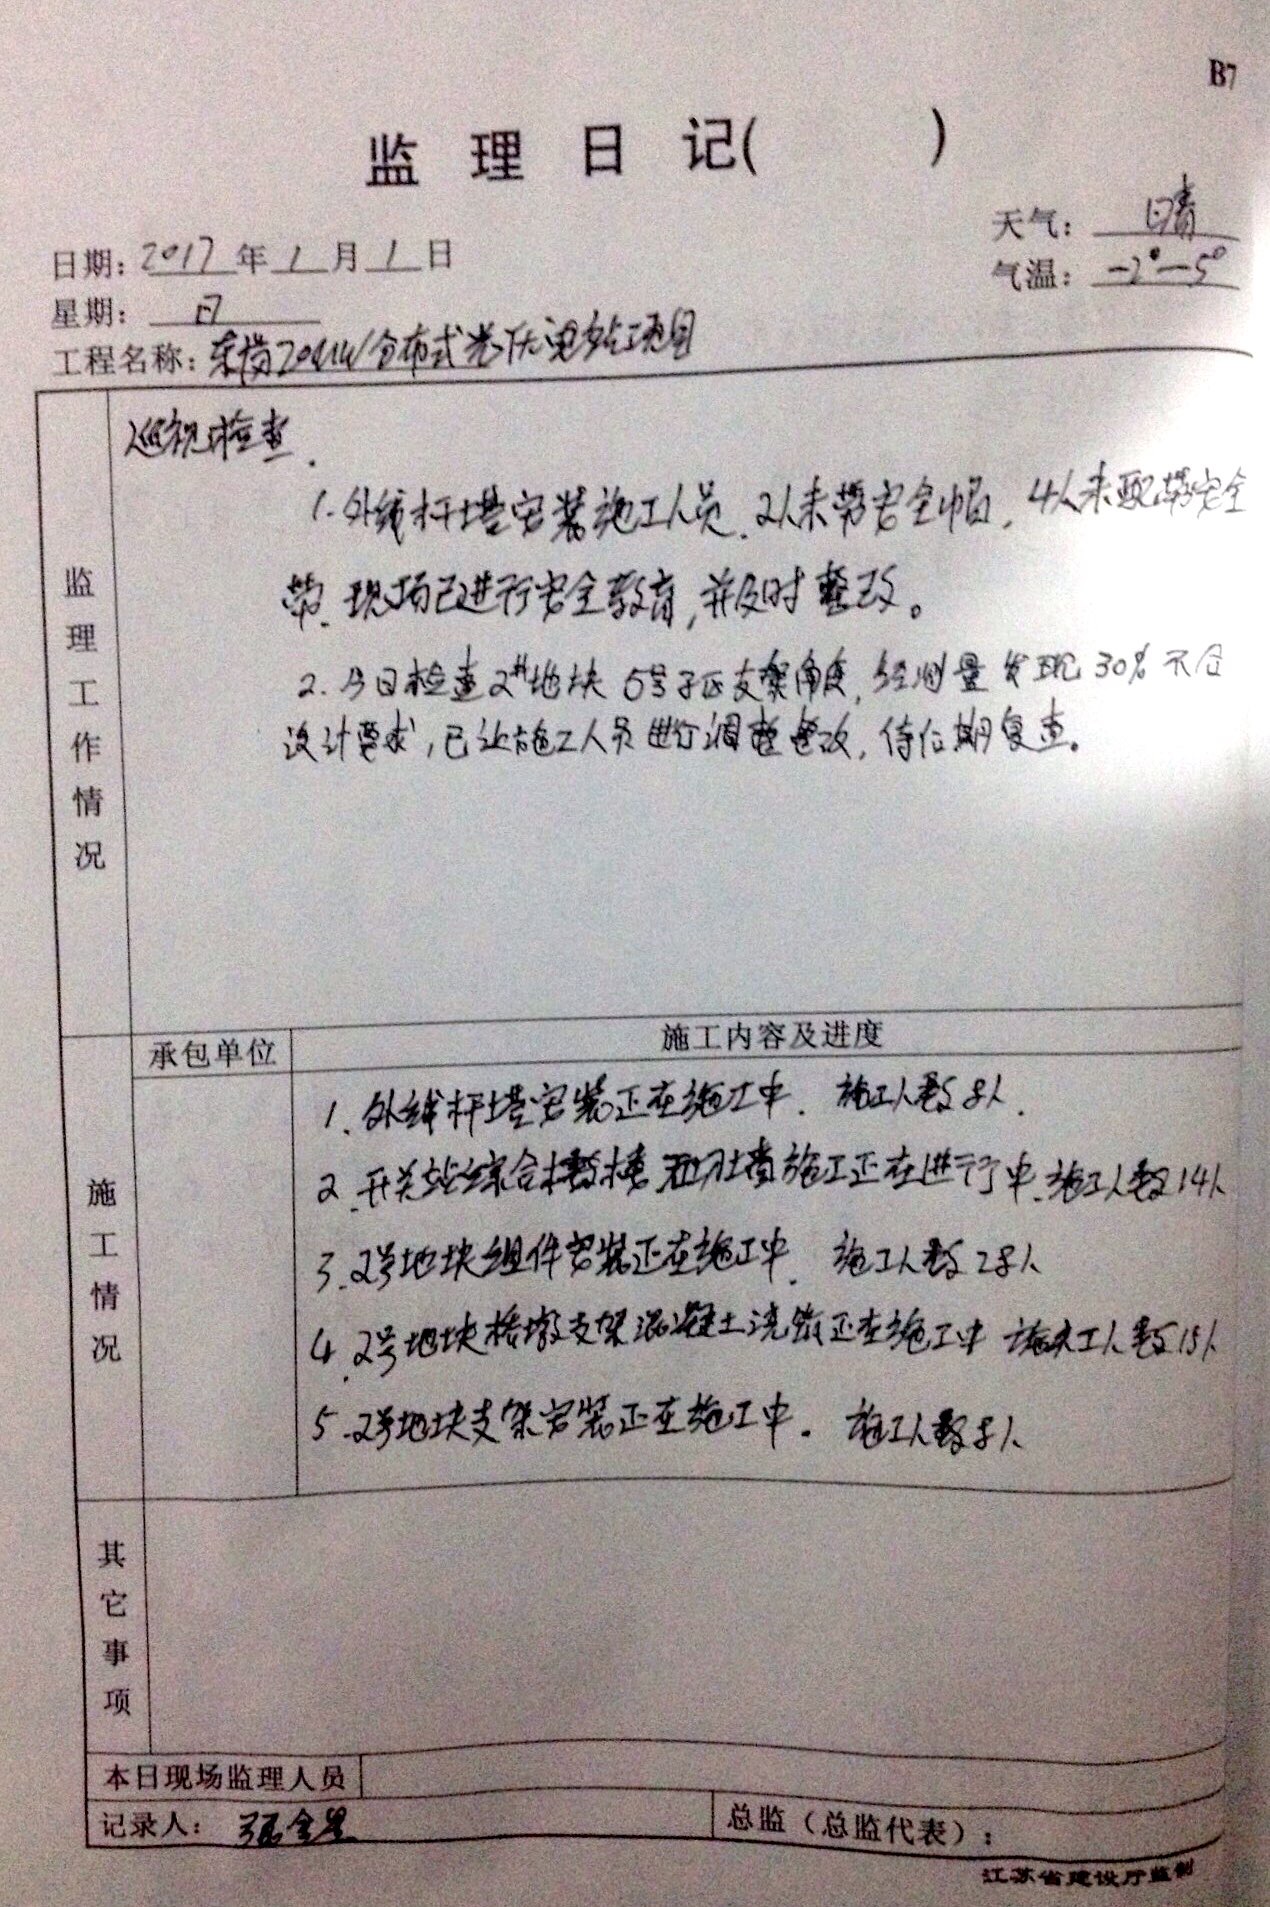 B7
监 理 日 记( )
天气: 晴
日期: 2017 年 1 月 1 日
气温: -2°-5°
星期: 日
工程名称: 东岗20MW分布式光伏电站项目
监理工作情况
巡视检查.
1. 外线杆塔安装施工人员, 2人未带安全帽, 4人未配带安全
带, 现场已进行安全教育, 并及时整改。
2. 今日检查2#地块 6号子区支架角度, 经测量发现30%不合
设计要求, 已让施工人员进行调整整改, 待后期复查。
承包单位
施工内容及进度
施工情况
1. 外线杆塔安装正在施工中. 施工人数8人.
2. 开关站综合楼 砌墙施工正在进行中. 施工人数14人
3. 2号地块组件安装正在施工中. 施工人数28人
4. 2号地块桥墩支架混凝土浇筑正在施工中 施工人数15人
5. 2号地块支架安装正在施工中. 施工人数8人
其它事项
本日现场监理人员
记录人:
总监（总监代表）:
江苏省建设厅监制